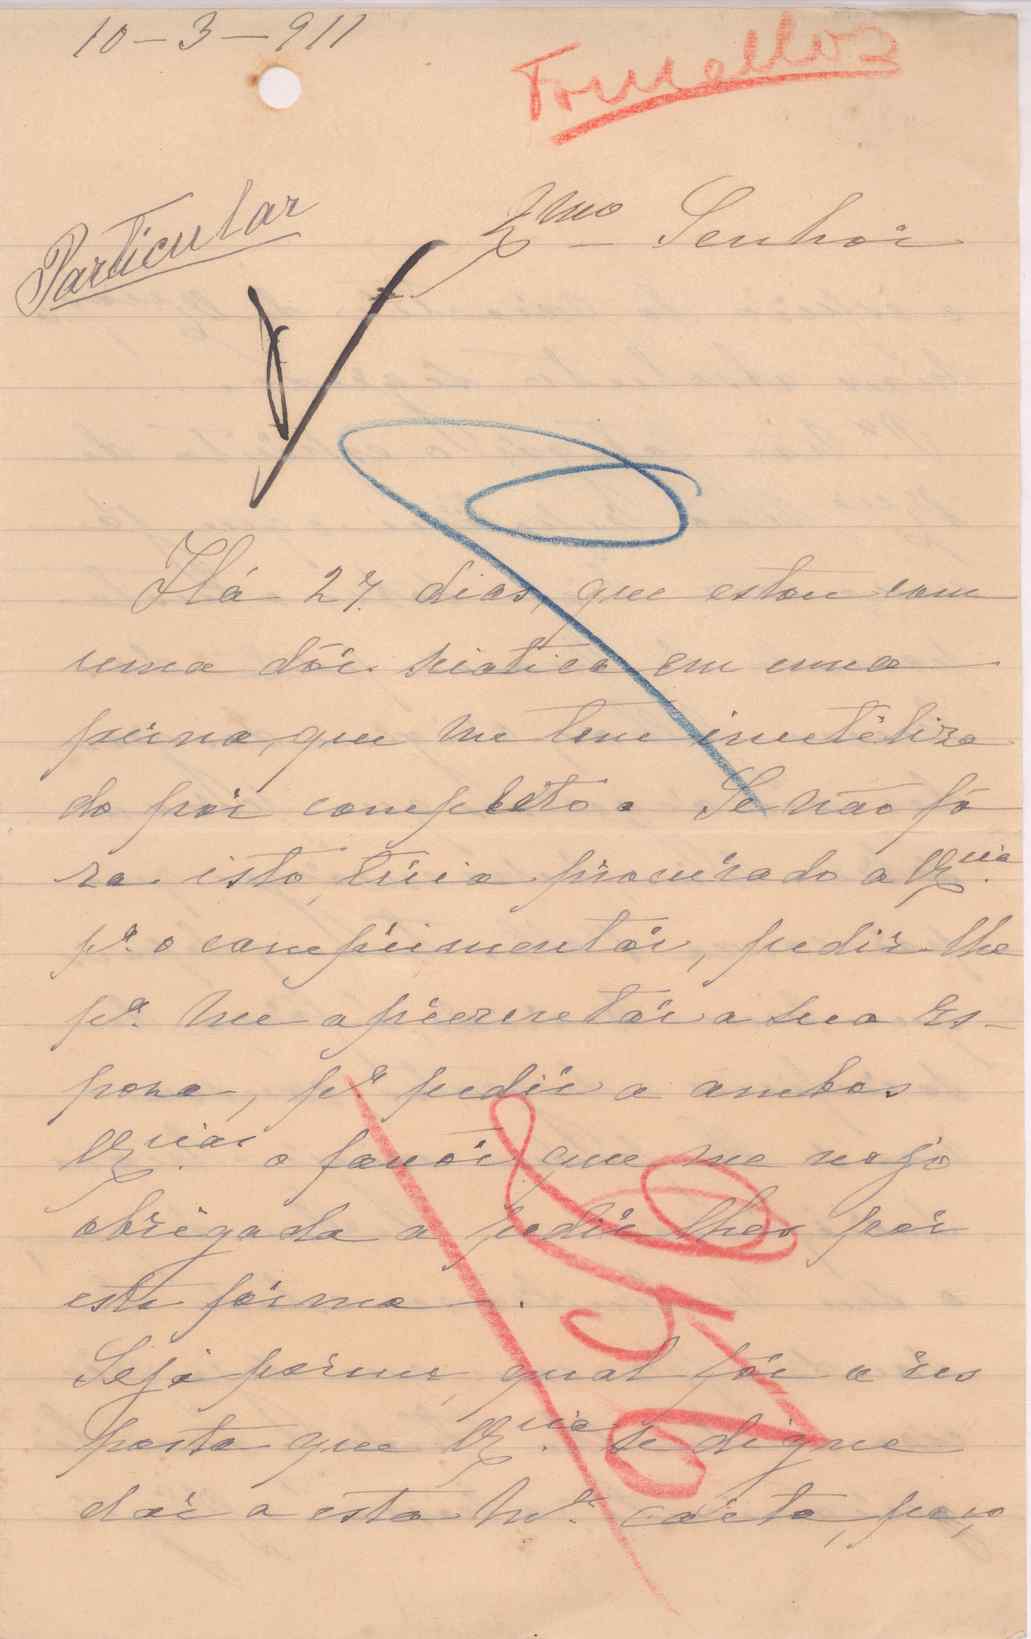 10-3-911
Particular
Exmo Senhor
Há 27 dias, que estou com
uma dôr sciatica em uma
perna, que me tem inutiliza
do por completo. Se não fô
ra isto, teria procurado a V. Excia
pa. o comprimentar, pedir-lhe
pa. me aprezentar a sua Es-
poza, pa pedir a ambas
V. Excias o favôr que me vejo
obrigada a pedir lhes por
esta fórma.
Seja porem, qual fôr a res
posta que V. Excia se digne
dar a esta ma. carta, peço